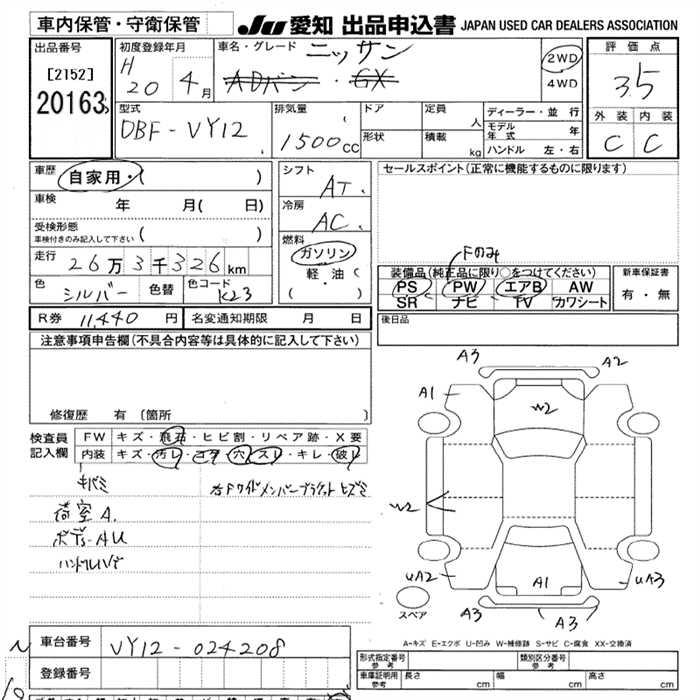 車内保管・守衛保管
JU 愛知 出品申込書 JAPAN USED CAR DEALERS ASSOCIATION
出品番号
[2152]
20163
初度登録年月
H 20 4月
車名・グレード ニッサン
ADバン・GX
2WD
4WD
評価点
3.5
外装 内装
C C
型式
DBF-VY12
排気量
1500cc
ドア
形状
定員 人
積載 kg
ディーラー・並行
モデル年式 年
ハンドル 左・右
車歴 自家用・( )
車検 年 月( 日)
受検形態
車検付きのみ記入して下さい ( )
走行 26万3千326km
色 シルバー 色替 色コード K23
シフト AT.
冷房 AC.
燃料 ガソリン
軽・油
( ・ )
セールスポイント(正常に機能するものに限ります)
Fのみ
装備品(純正品に限り○をつけてください)
PS PW エアB AW
SR ナビ TV カワシート
新車保証書
有・無
R券 11,440 円 名変通知期限 月 日
後日品
注意事項申告欄(不具合内容等は具体的に記入して下さい)
修復歴 有 [箇所 ]
検査員
記入欄
FW キズ・飛石・ヒビ割・リペア跡・X要
内装 キズ・汚レ・コゲ・穴・スレ・キレ・破レ
キバミ
荷室A.
ボデS-AU
ハンドルハゲ
右Fサイドメンバーブラケットヒズミ
A3 A2
A1
W2
W2
UA2 A1 UA3
スペア
A3 A3
A-キズ E-エクボ U-凹み W-補修跡 S-サビ C-腐食 XX-交換済
車台番号 VY12-024208
登録番号
形式指定番号
参考
類別区分番号
参考
車庫証明用
参考
長さ cm 幅 cm 高さ cm